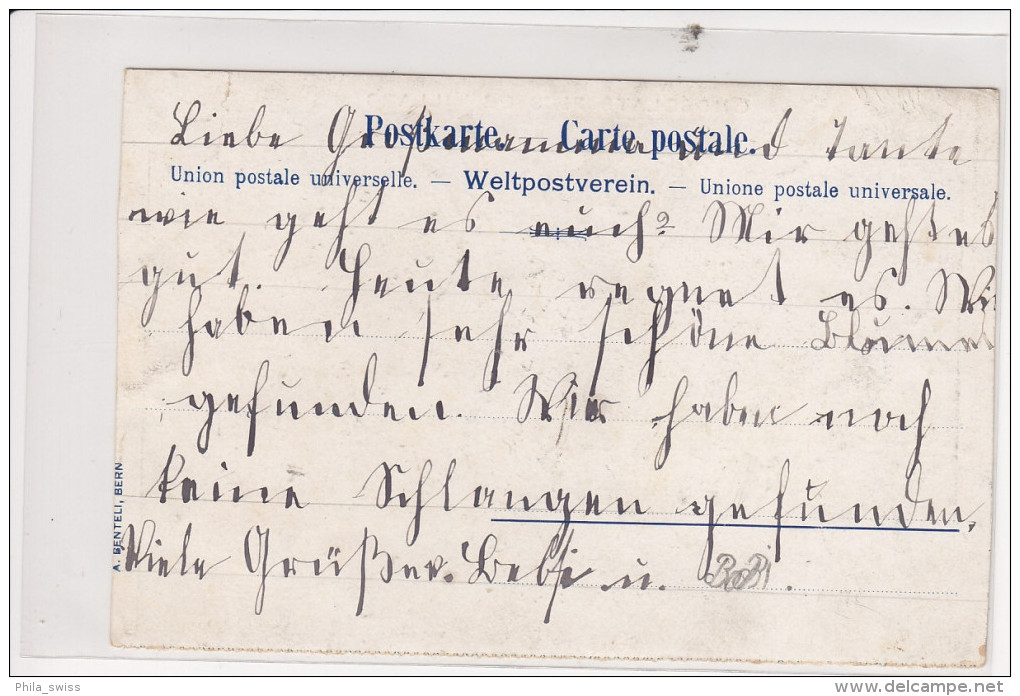 Liebe Großmamma und Tante
Postkarte. Carte postale.
Union postale universelle. — Weltpostverein. — Unione postale universale.
wie geht es euch? Mir geht es
gut. Heute regnet es. Wir
haben sehr schöne Blumen
gefunden. Wir haben noch
keine Schlangen gefunden.
Viele Grüße
u.
A. BENTELI, BERN
Phila_swiss
www.delcampe.net